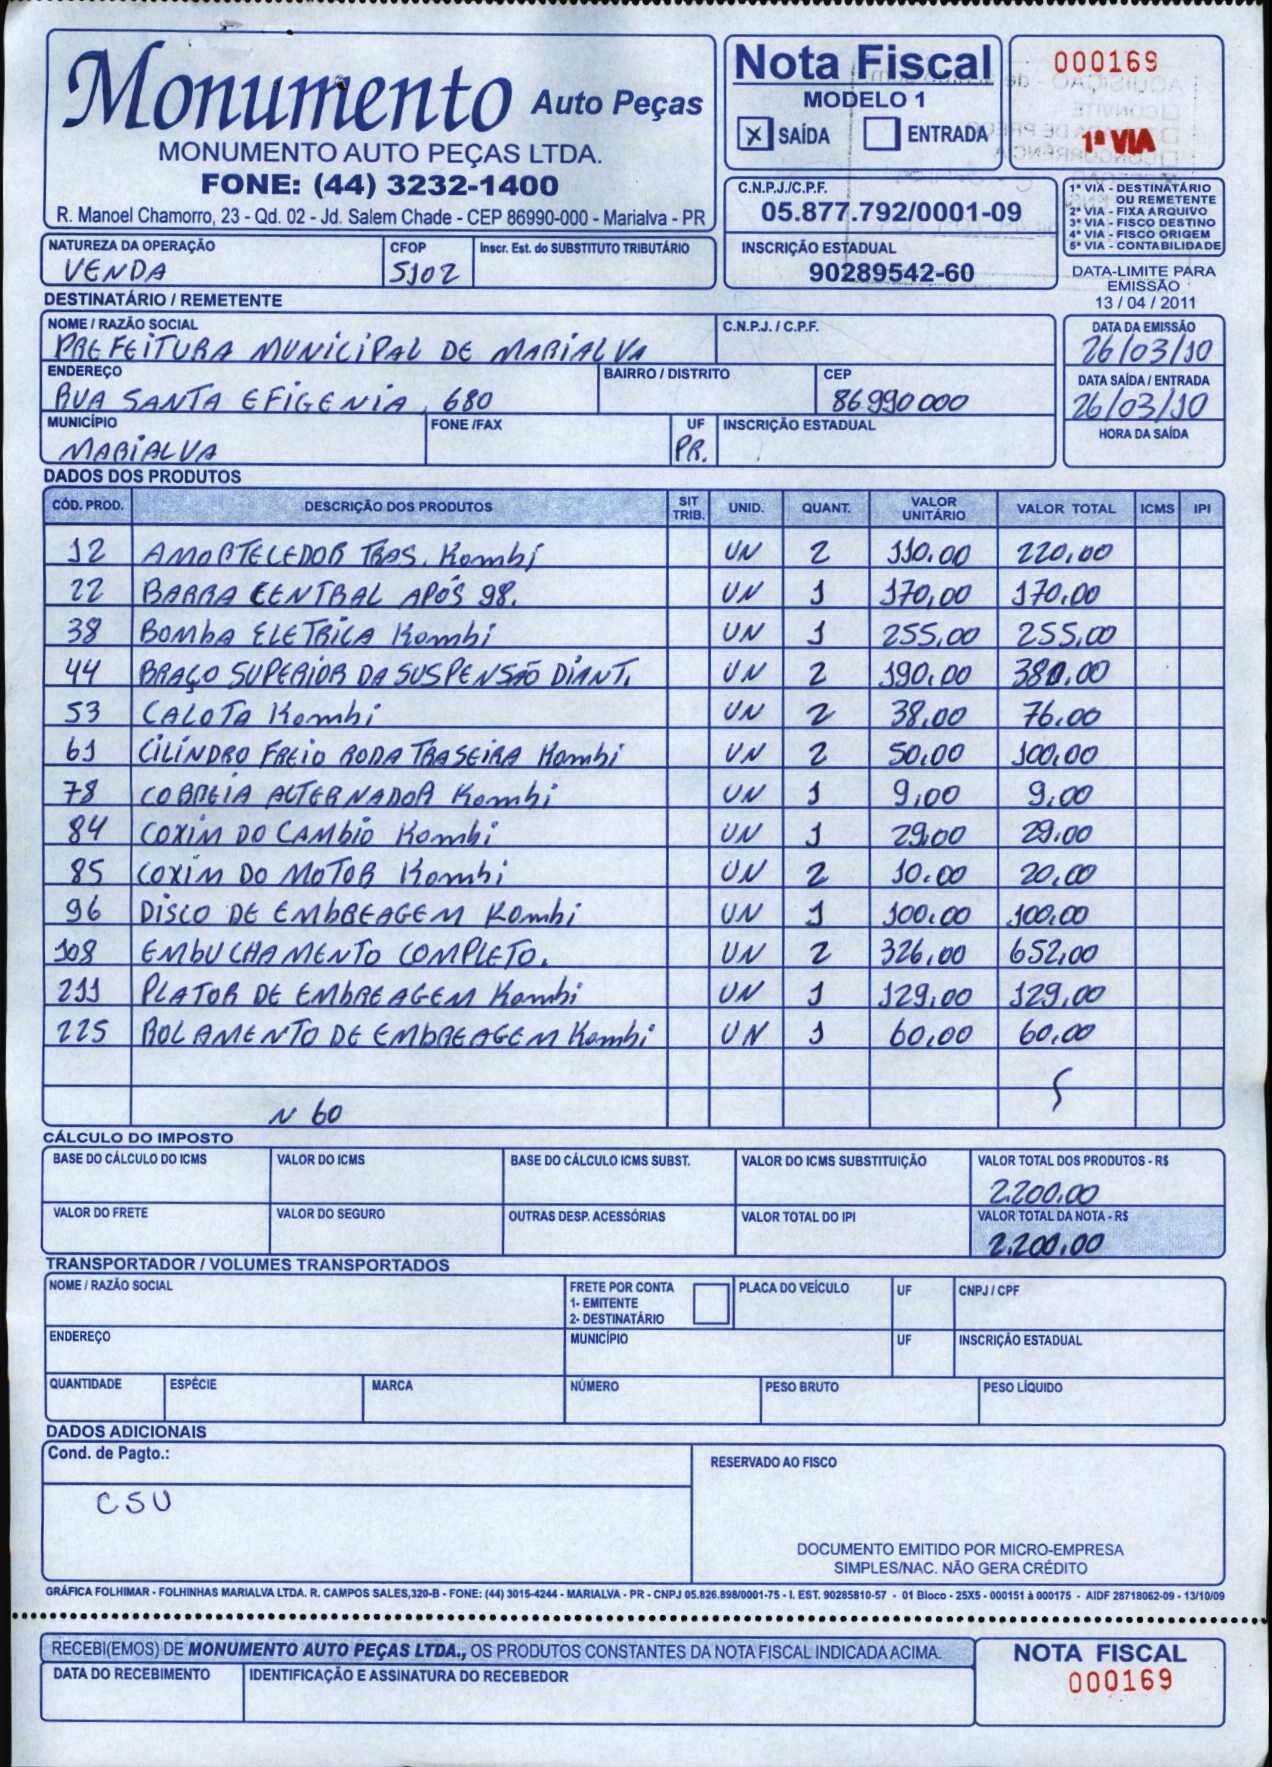 Monumento Auto Peças
MONUMENTO AUTO PEÇAS LTDA.
FONE: (44) 3232-1400
R. Manoel Chamorro, 23 - Qd. 02 - Jd. Salem Chade - CEP 86990-000 - Marialva - PR
Nota Fiscal
MODELO 1
X SAÍDA ENTRADA
000169
1ª VIA
C.N.P.J./C.P.F.
05.877.792/0001-09
INSCRIÇÃO ESTADUAL
90289542-60
1ª VIA - DESTINATÁRIO
OU REMETENTE
2ª VIA - FIXA ARQUIVO
3ª VIA - FISCO DESTINO
4ª VIA - FISCO ORIGEM
5ª VIA - CONTABILIDADE
DATA-LIMITE PARA
EMISSÃO
13 / 04 / 2011
NATUREZA DA OPERAÇÃO CFOP Inscr. Est. do SUBSTITUTO TRIBUTÁRIO
VENDA 5102
DESTINATÁRIO / REMETENTE
NOME / RAZÃO SOCIAL C.N.P.J. / C.P.F. DATA DA EMISSÃO
PREFEITURA MUNICIPAL DE MARIALVA 26/03/10
ENDEREÇO BAIRRO / DISTRITO CEP DATA SAÍDA / ENTRADA
RUA SANTA EFIGENIA, 680 86990000 26/03/10
MUNICÍPIO FONE /FAX UF INSCRIÇÃO ESTADUAL HORA DA SAÍDA
MARIALVA PR.
DADOS DOS PRODUTOS
CÓD. PROD. DESCRIÇÃO DOS PRODUTOS SIT TRIB. UNID. QUANT. VALOR UNITÁRIO VALOR TOTAL ICMS IPI
12 AMORTECEDOR TRAS. Kombi UN 2 110,00 220,00
22 BARRA CENTRAL APÓS 98. UN 1 170,00 170,00
38 BOMBA ELETRICA Kombi UN 1 255,00 255,00
44 BRAÇO SUPERIOR DA SUSPENSÃO DIANT. UN 2 190,00 380,00
53 CALOTA Kombi UN 2 38,00 76,00
61 CILINDRO FREIO RODA TRASEIRA Kombi UN 2 50,00 100,00
78 CORREIA ALTERNADOR Kombi UN 1 9,00 9,00
84 COXIM DO CAMBIO Kombi UN 1 29,00 29,00
85 COXIM DO MOTOR Kombi UN 2 10,00 20,00
96 DISCO DE EMBREAGEM Kombi UN 1 100,00 100,00
108 EMBUCHAMENTO COMPLETO. UN 2 326,00 652,00
211 PLATOR DE EMBREAGEM Kombi UN 1 129,00 129,00
225 ROLAMENTO DE EMBREAGEM Kombi UN 1 60,00 60,00
N 60
CÁLCULO DO IMPOSTO
BASE DO CÁLCULO DO ICMS VALOR DO ICMS BASE DO CÁLCULO ICMS SUBST. VALOR DO ICMS SUBSTITUIÇÃO VALOR TOTAL DOS PRODUTOS - R$
2.200,00
VALOR DO FRETE VALOR DO SEGURO OUTRAS DESP. ACESSÓRIAS VALOR TOTAL DO IPI VALOR TOTAL DA NOTA - R$
2.200,00
TRANSPORTADOR / VOLUMES TRANSPORTADOS
NOME / RAZÃO SOCIAL FRETE POR CONTA PLACA DO VEÍCULO UF CNPJ / CPF
1- EMITENTE
2- DESTINATÁRIO
ENDEREÇO MUNICÍPIO UF INSCRIÇÃO ESTADUAL
QUANTIDADE ESPÉCIE MARCA NÚMERO PESO BRUTO PESO LÍQUIDO
DADOS ADICIONAIS
Cond. de Pagto.:
RESERVADO AO FISCO
CSU
DOCUMENTO EMITIDO POR MICRO-EMPRESA
SIMPLES/NAC. NÃO GERA CRÉDITO
GRÁFICA FOLHIMAR - FOLHINHAS MARIALVA LTDA. R. CAMPOS SALES,320-B - FONE: (44) 3015-4244 - MARIALVA - PR - CNPJ 05.826.898/0001-75 - I. EST. 90285810-57 - 01 Bloco - 25X5 - 000151 à 000175 - AIDF 28718062-09 - 13/10/09
RECEBI(EMOS) DE MONUMENTO AUTO PEÇAS LTDA., OS PRODUTOS CONSTANTES DA NOTA FISCAL INDICADA ACIMA.
DATA DO RECEBIMENTO IDENTIFICAÇÃO E ASSINATURA DO RECEBEDOR
NOTA FISCAL
000169